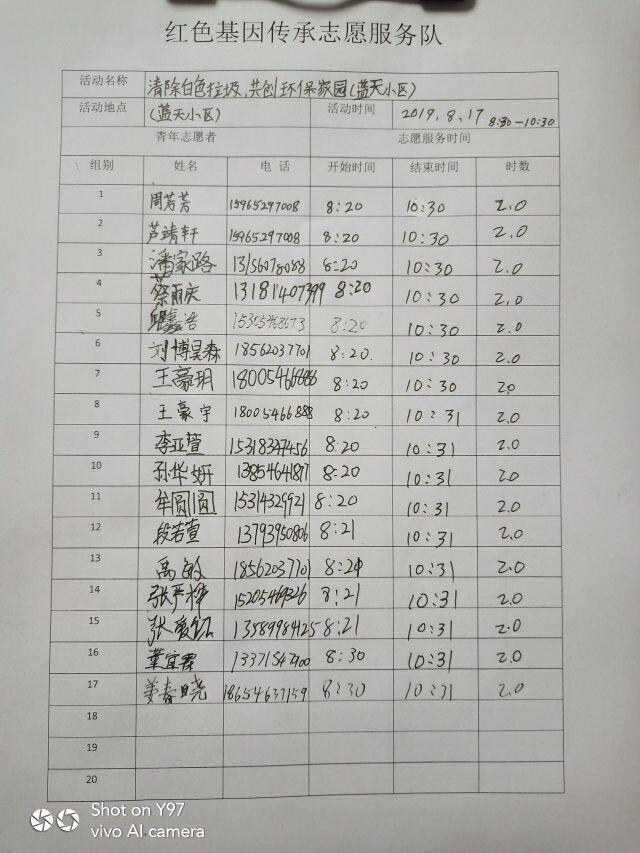 红色基因传承志愿服务队
活动名称 清除白色垃圾,共创环保家园(蓝天小区)
活动地点 (蓝天小区) 活动时间 2019.8、17 8:30-10:30
青年志愿者 志愿服务时间
组别 姓名 电话 开始时间 结束时间 时数
1 周芳芳 15965297008 8:20 10:30 2.0
2 芦靖轩 15965297008 8:20 10:30 2.0
3 潘家路 13156078088 8:20 10:30 2.0
4 蔡雨庆 13181407399 8:20 10:30 2.0
5 鑫浩 8:20 10:30 2.0
6 刘博昊森 18562037701 8:20. 10:30 2.0
7 王豪玥 8:20 10:30 2.0
8 王豪宇 18005466888 8:20 10:31 2.0
9 李亚萱 15318347456 8:20 10:31 2.0
10 孙华妍 13854641877 8:20 10:31 2.0
11 牟圆圆 15314329921 8:20 10:31 2.0
12 段若萱 13793950806 8:21 10:31 2.0
13 禹敏 18562037701 8:21 10:31 2.0
14 张严桦 8:21 10:31 2.0
15 张爱 13589984125 8:21 10:31 2.0
16 宜霖 13371547900 8:30 10:31 2.0
17 姜春晓 18654637159 8:30 10:31 2.0
18
19
20
Shot on Y97
vivo AI camera